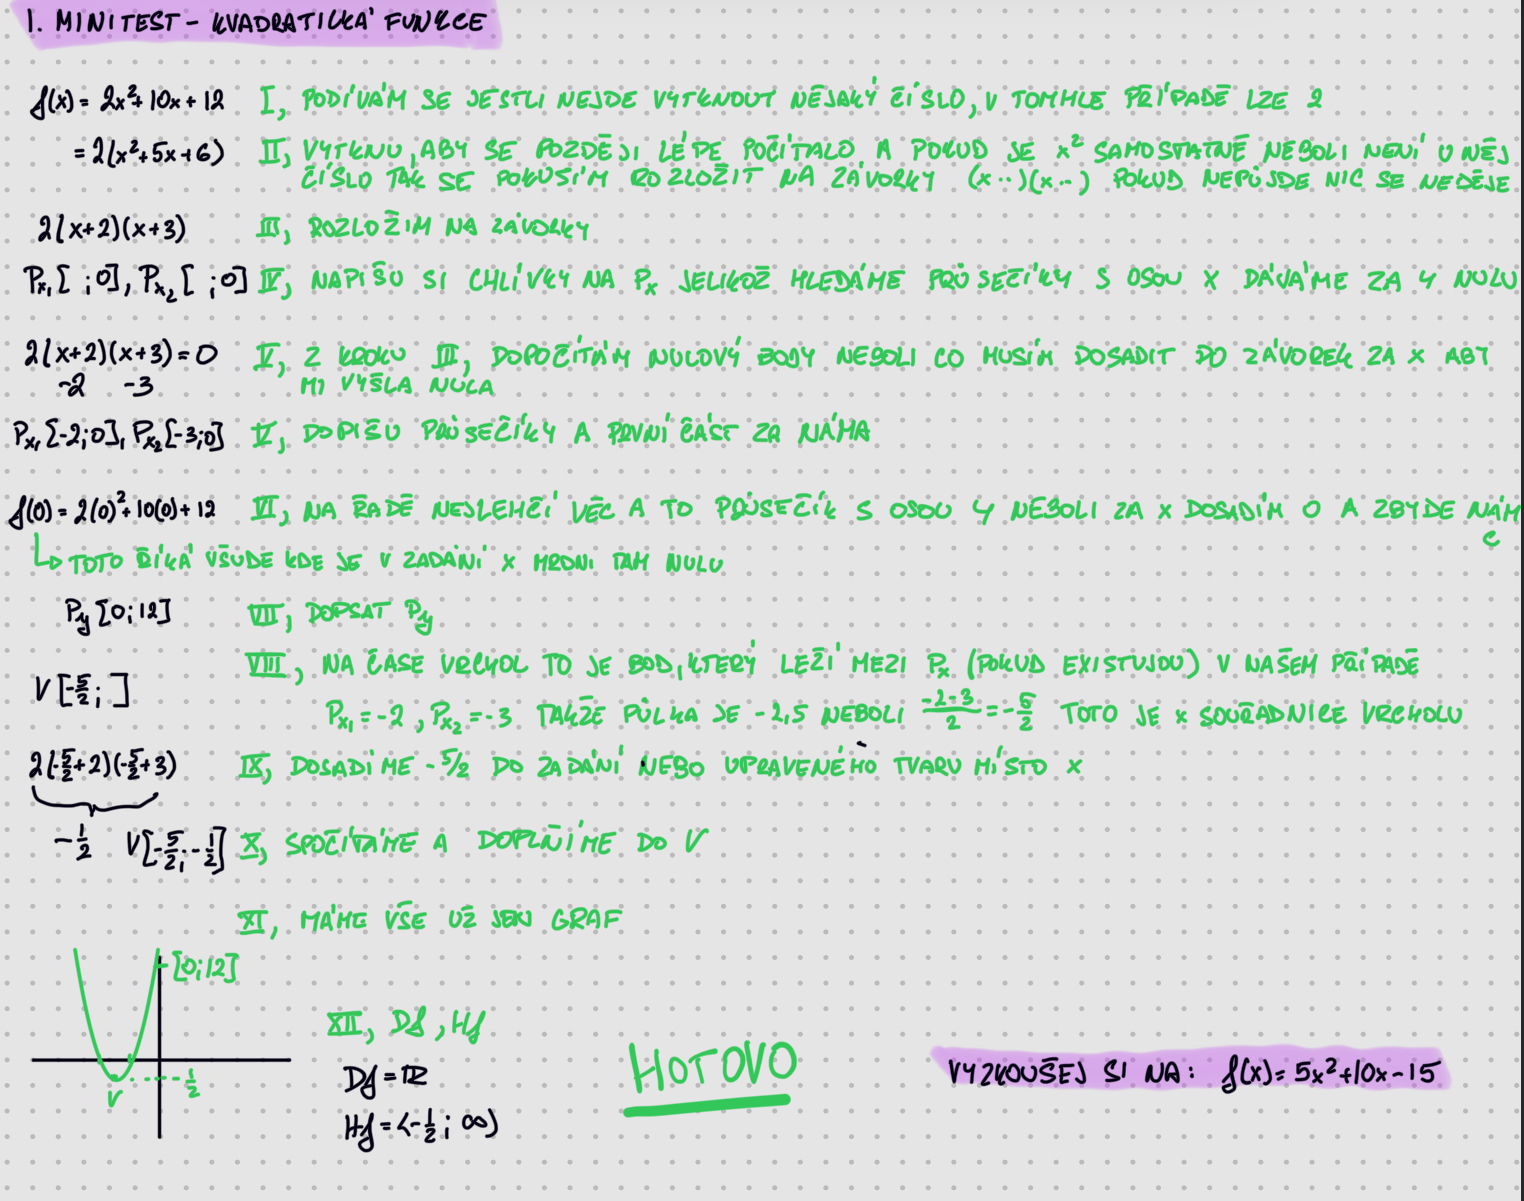 1. MINITEST - KVADRATICKÁ FUNKCE
f(x) = 2x²+10x+12 I, PODÍVÁM SE JESTLI NEJDE VYTKNOUT NĚJAKÝ ČÍSLO, V TOMHLE PŘÍPADĚ LZE 2
= 2(x²+5x+6) II, VYTKNU, ABY SE POZDĚJI LÉPE POČÍTALO A POKUD JE x² SAMOSTATNĚ NEBOLI NENÍ U NĚJ
ČÍSLO TAK SE POKUSÍM ROZLOŽIT NA ZÁVORKY (x··)(x··) POKUD NEPŮJDE NIC SE NEDĚJE
2(x+2)(x+3) III, ROZLOŽÍM NA ZÁVORKY
Px₁[ ;0], Px₂[ ;0] IV, NAPÍŠU SI CHLÍVKY NA Px JELIKOŽ HLEDÁME PRŮSEČÍKY S OSOU X DÁVÁME ZA Y NULU
2(x+2)(x+3)=0 V, Z KROKU III, DOPOČÍTÁM NULOVÝ BODY NEBOLI CO MUSÍM DOSADIT DO ZÁVOREK ZA X ABY
-2 -3 MI VYŠLA NULA
Px₁[-2;0], Px₂[-3;0] V, DOPÍŠU PRŮSEČÍKY A PRVNÍ ČÁST ZA NÁMA
f(0) = 2(0)²+10(0)+12 VI, NA ŘADĚ NEJLEHČÍ VĚC A TO PRŮSEČÍK S OSOU Y NEBOLI ZA X DOSADÍM 0 A ZBYDE NÁM
C
↳ TOTO ŘÍKÁ VŠUDE KDE JE V ZADÁNÍ X HRDNI TAM NULU
Py[0;12] VII, DOPSAT Py
VIII, NA ČASE VRCHOL TO JE BOD, KTERÝ LEŽÍ MEZI Px (POKUD EXISTUJOU) V NAŠEM PŘÍPADĚ
V[-5/2; ] Px₁=-2, Px₂=-3 TAKŽE PŮLKA JE -2,5 NEBOLI (-2-3)/2 = -5/2 TOTO JE X SOUŘADNICE VRCHOLU
2(-5/2+2)(-5/2+3) IX, DOSADÍME -5/2 DO ZADÁNÍ NEBO UPRAVENÉHO TVARU MÍSTO X
-1/2 V[-5/2;-1/2] X, SPOČÍTÁME A DOPLNÍME DO V
XI, MÁME VŠE UŽ JEN GRAF
[0;12]
XII, Df, Hf
HOTOVO
VYZKOUŠEJ SI NA: f(x)= 5x²+10x-15
Df = ℝ
V -1/2
Hf = <-1/2; ∞)